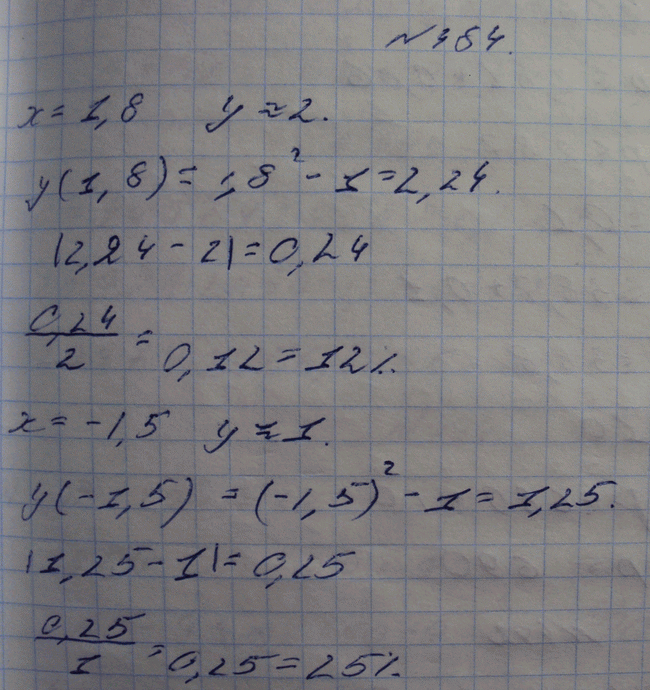 № 364.
x = 1,8 y ≈ 2.
y(1,8) = 1,8² - 1 = 2,24.
|2,24 - 2| = 0,24
0,24/2 = 0,12 = 12%.
x = -1,5 y ≈ 1.
y(-1,5) = (-1,5)² - 1 = 1,25.
|1,25 - 1| = 0,25
0,25/1 = 0,25 = 25%.